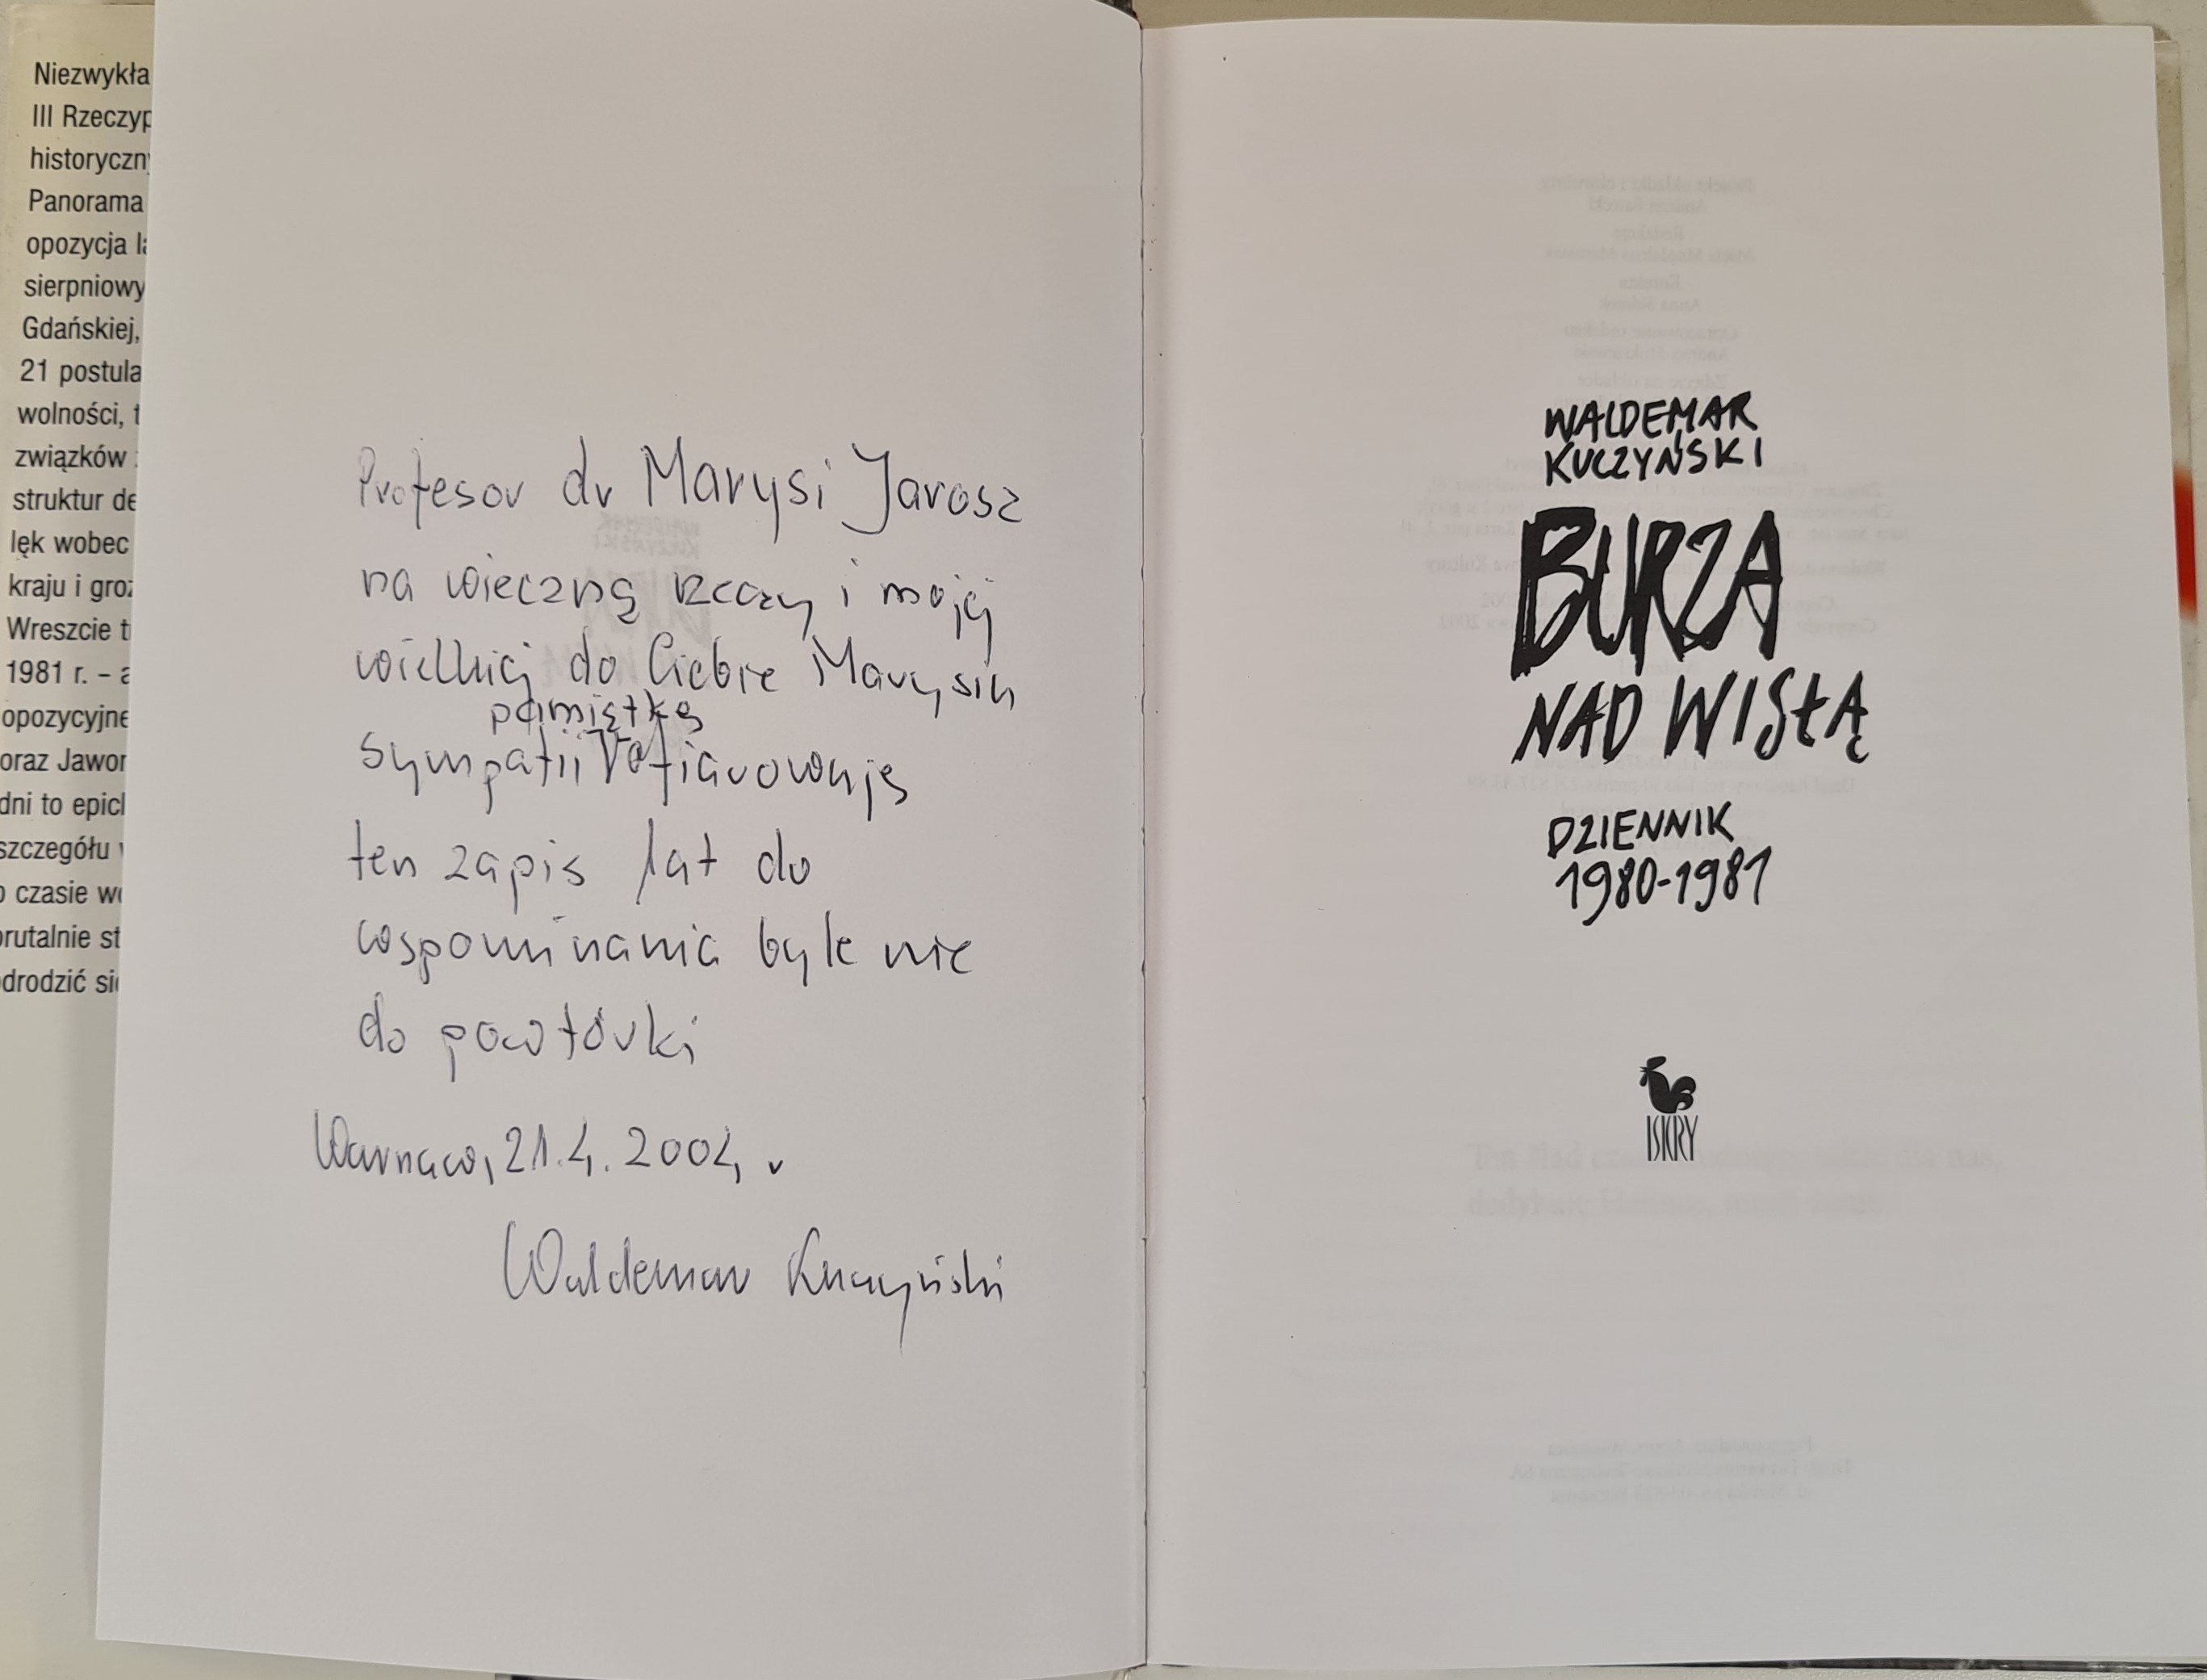 Niezwykła
III Rzeczyp
historyczn
Panorama
opozycja
sierpniowy
Gdańskiej,
21 postula
wolności, t
związków
struktur de
lęk wobec
kraju i groź
Wreszcie t
1981 r. – a
opozycyjne
oraz Jawor
dni to epicl
szczegółu
o czasie wo
brutalnie st
odrodzić się
Profesor dr Marysi Jarosz
na wieczną rzeczy i mojej
wielkiej do Ciebie Marysiu
pamiątkę
sympatii ofiarowuję
ten zapis lat do
wspominania byle nie
do powtórki
Warszawa, 21.4.2004 r
Waldemar Kuczyński
WALDEMAR
KUCZYŃSKI
BURZA
NAD WISŁĄ
DZIENNIK
1980-1981
ISKRY